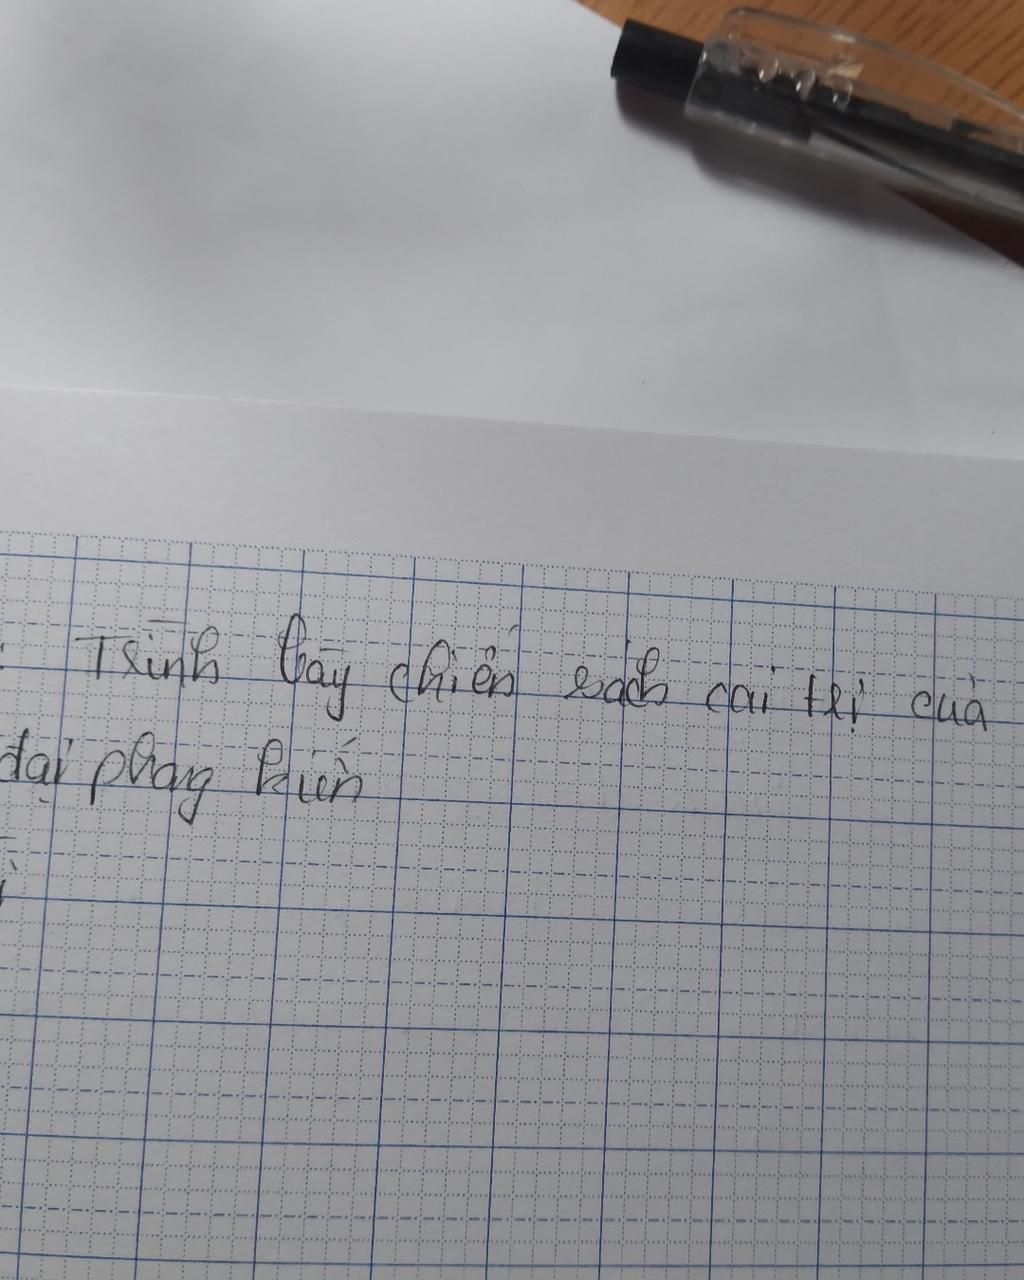 : Trình bày chiến sách cai trị của
đại phong kiến